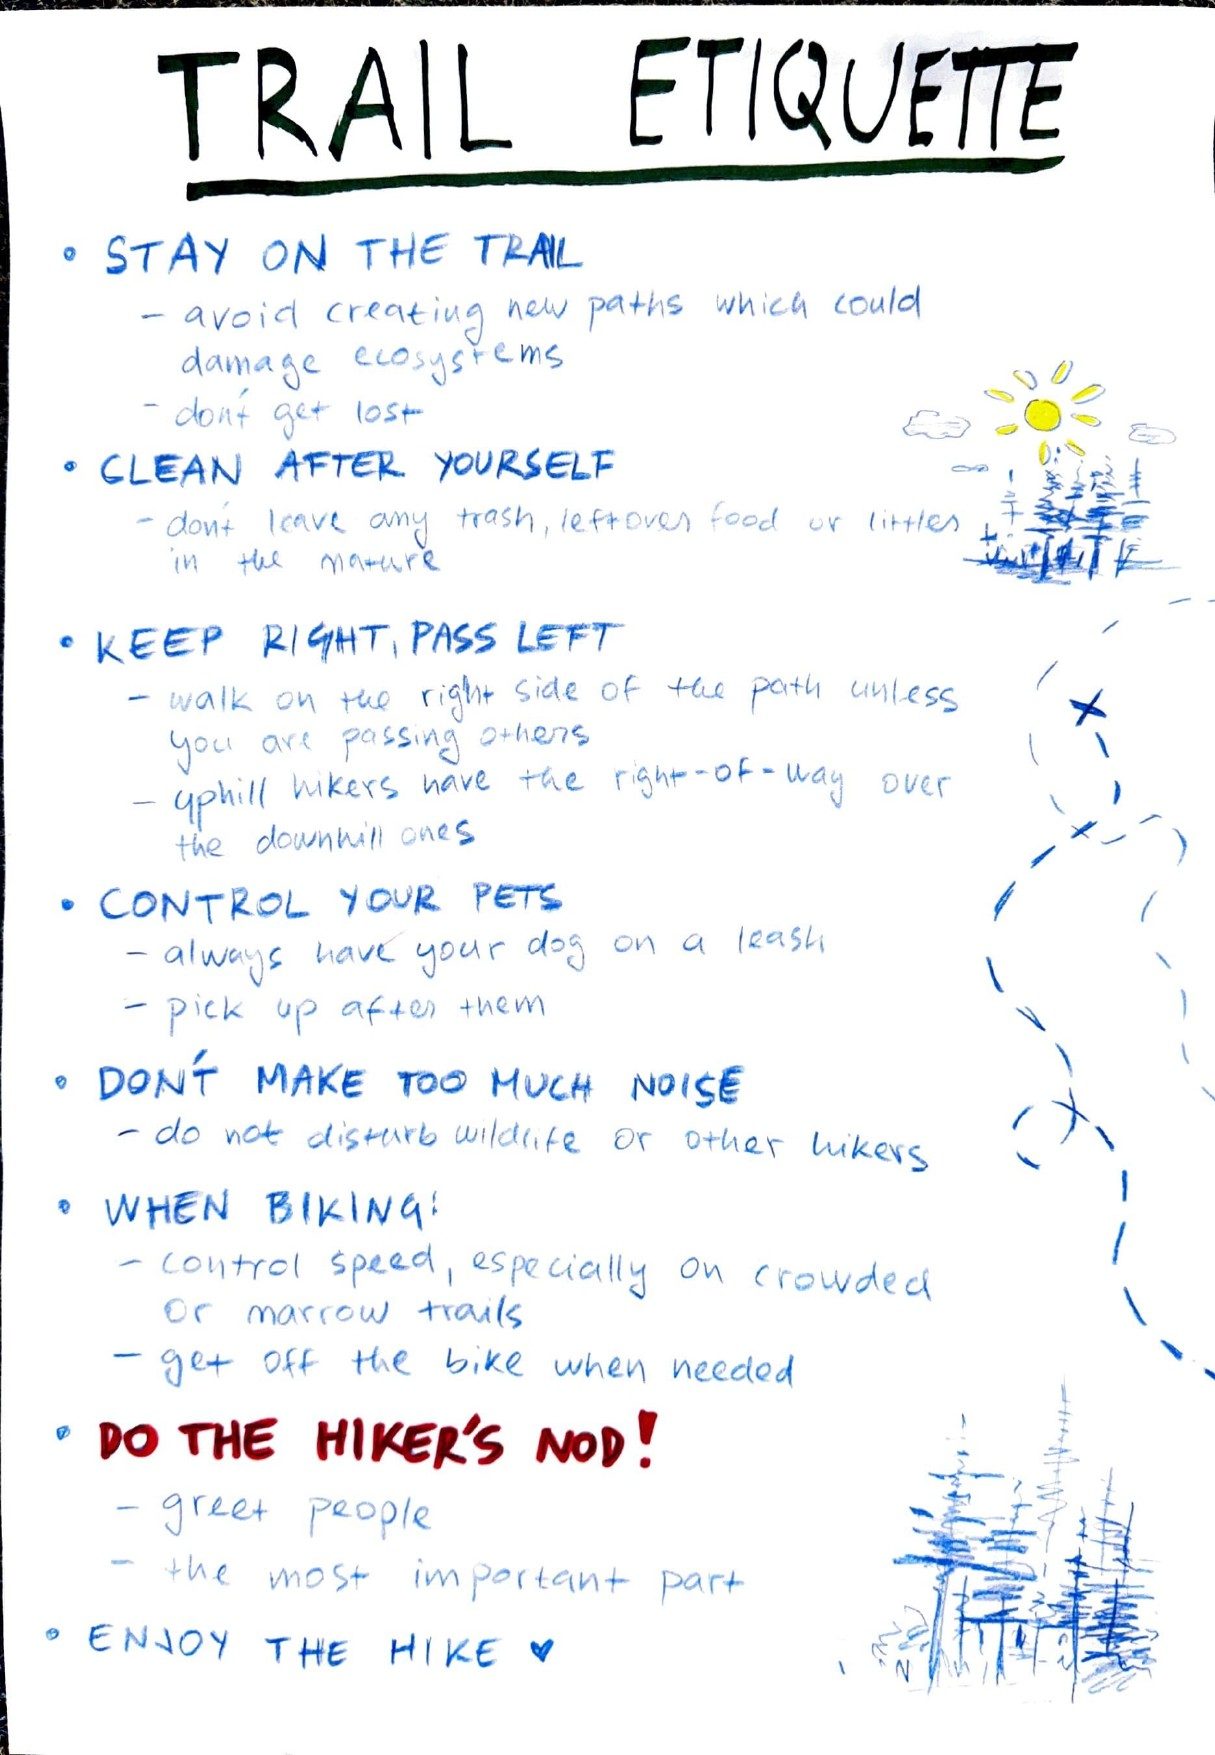 TRAIL ETIQUETTE
• STAY ON THE TRAIL
- avoid creating new paths which could
damage ecosystems
- don't get lost
• CLEAN AFTER YOURSELF
- don't leave any trash, leftover food or littles
in the nature
• KEEP RIGHT, PASS LEFT
- walk on the right side of the path unless
you are passing others
- uphill hikers have the right-of-way over
the downhill ones
• CONTROL YOUR PETS
- always have your dog on a leash
- pick up after them
• DON'T MAKE TOO MUCH NOISE
- do not disturb wildlife or other hikers
• WHEN BIKING:
- control speed, especially on crowded
or narrow trails
- get off the bike when needed
• DO THE HIKER'S NOD!
- greet people
- the most important part
• ENJOY THE HIKE ♥